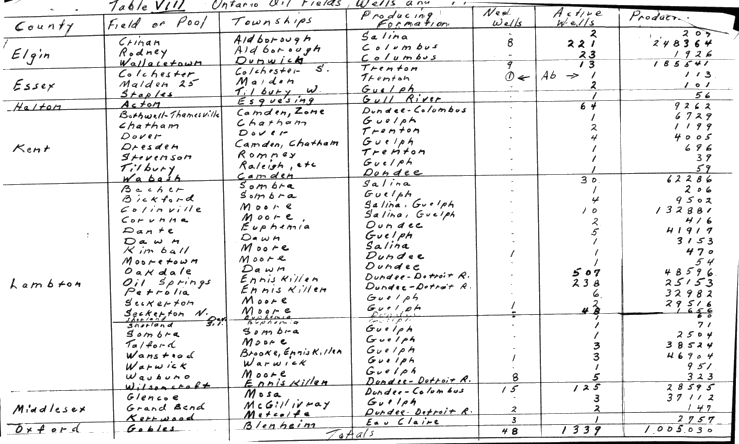 Table VIII Ontario Oil Fields, Wells and
County Field or Pool Townships Producing Formation New Wells Active Wells Product
Crinan Aldborough Salina - 2 207
Elgin Rodney Aldborough Columbus 8 221 248364
Wallacetown Dunwich Columbus - 23 1926
Colchester Colchester S. Trenton 9 13 188541
Essex Malden 25 Malden Trenton ① ← Ab → 1 113
Staples Tilbury W. Guelph - 2 101
Halton Acton Esquesing Gull River - 1 56
Bothwell-Thamesville Camden, Zone Dundee-Columbus - 64 9262
Chatham Chatham Guelph - 1 6729
Dover Dover Trenton - 2 1199
Kent Dresden Camden, Chatham Guelph - 4 4005
Stevenson Romney Trenton - 4 696
Tilbury Raleigh, etc Guelph - 1 39
Wabash Camden Dundee - 1 59
Becher Sombra Salina - 30 62286
Bickford Sombra Guelph - 1 206
Colinville Moore Salina, Guelph - 4 9502
Corunna Moore Salina, Guelph - 10 132881
Dante Euphemia Dundee - 2 416
Dawn Dawn Guelph - 5 41917
Kimball Moore Salina - 1 3153
Mooretown Moore Dundee 1 1 470
Oakdale Dawn Dundee - 1 54
Lambton Oil Springs Enniskillen Dundee-Detroit R. - 507 48596
Petrolia Enniskillen Dundee-Detroit R. - 238 25153
Seckerton Moore Guelph - 6 32982
Seckerton N. Moore Guelph 1 2 29516
48 1656
Shetland Euphemia Guelph - 1 71
Sombra Sombra Guelph - 1 2504
Talford Moore Guelph - 3 38524
Wanstead Brooke, Enniskillen Guelph 1 3 46904
Warwick Warwick Guelph - 1 951
Waubuno Moore Guelph
Wilsoncroft Enniskillen Dundee-Detroit R. 8 5 323
Glencoe Mosa Dundee-Columbus 15 125 28595
Middlesex Grand Bend McGillivray Guelph - 3 37112
Kerrwood Metcalfe Dundee-Detroit R. 2 2 147
Oxford Gobles Blenheim Eau Claire 3 2757
Totals 48 1339 1.005.030